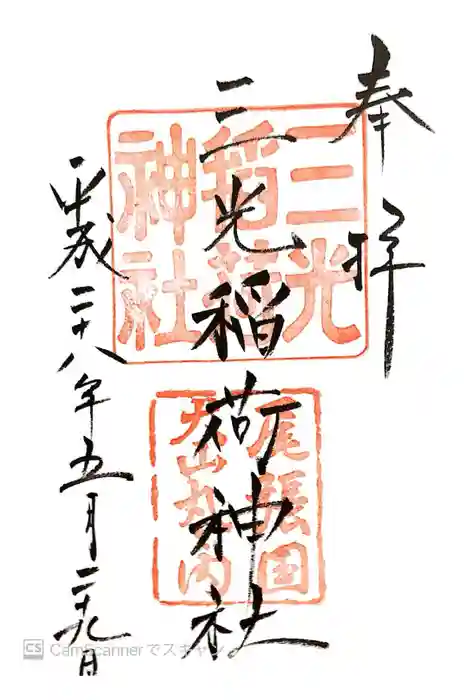 奉拝
三光稲荷神社
三光稲荷神社
尾張国犬山丸の内
平成二十八年五月二十九日
CS CamScannerでスキャン